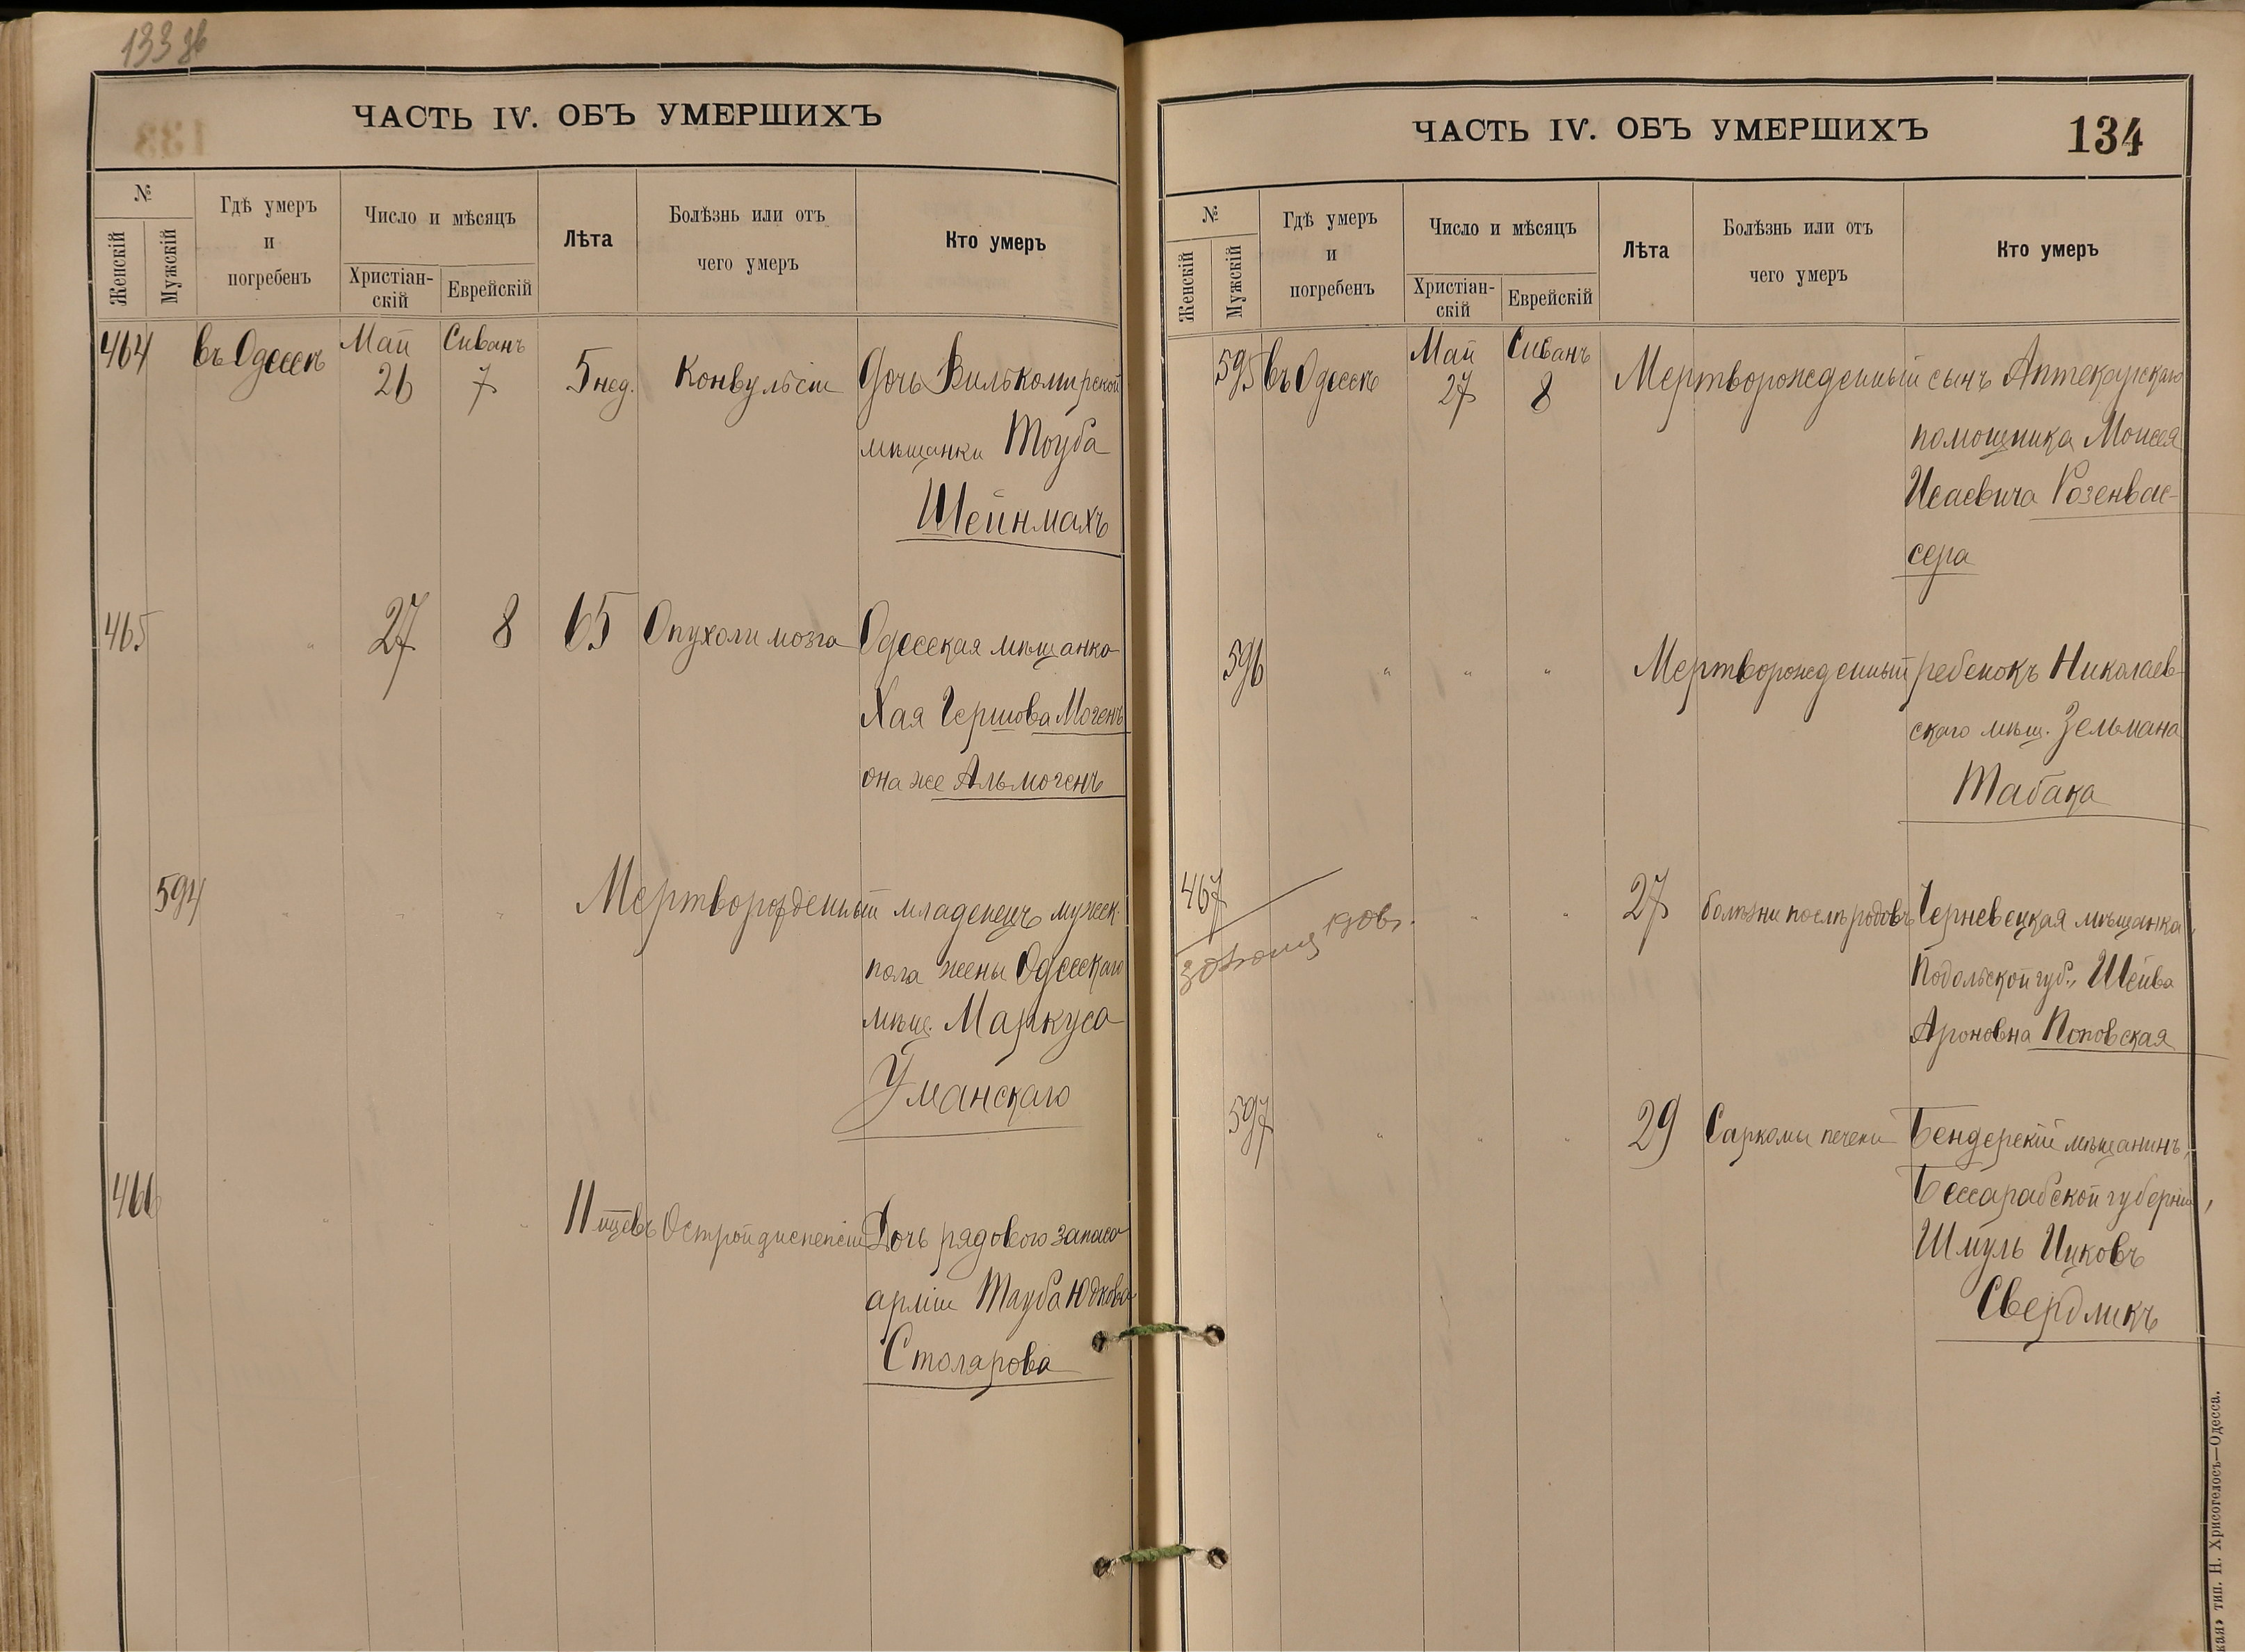 133 об
ЧАСТЬ IV. ОБЪ УМЕРШИХЪ
№
Женскій
Мужскій
Гдѣ умеръ
и
погребенъ
Число и мѣсяцъ
Христіан-
скій
Еврейскій
Лѣта
Болѣзнь или отъ
чего умеръ
Кто умеръ
464 въ Одессѣ Май 26 Сиванъ 7 5 нед. Конвульсіи Дочь Вилькомирской
мѣщанки Тоуба
Шейнмахъ
465 " 27 8 65 Опухоли мозга Одесская мѣщанка
Хая Гершова Могенъ
она же Альмогенъ
594 " " " Мертворожденный младенецъ мужеск.
пола жены Одесскаго
мѣщ. Маркуса
Уманскаго
466 " " " 11 мцевъ Острой диспепсіи Дочь рядового запаса
арміи Тауба Юдкова
Столярова
ЧАСТЬ IV. ОБЪ УМЕРШИХЪ
134
№
Женскій
Мужскій
Гдѣ умеръ
и
погребенъ
Число и мѣсяцъ
Христіан-
скій
Еврейскій
Лѣта
Болѣзнь или отъ
чего умеръ
Кто умеръ
595 въ Одессѣ Май 27 Сиванъ 8 Мертворожденный сынъ Аптекарскаго
помощника Моисея
Исаевича Розенвас-
сера
596 " " " Мертворожденный ребенокъ Николаев-
скаго мѣщ. Зельмана
Табака
467 " " 27 болѣзни послѣ родовъ Черневецкая мѣщанка,
1906 г.
Подольской губ., Шейва
Ароновна Поповская
597 " " " 29 Саркомы печени Бендерскій мѣщанинъ,
Бессарабской губерніи,
Шмуль Ицковъ
Свердликъ
тип. Н. Хрисогелосъ—Одесса.